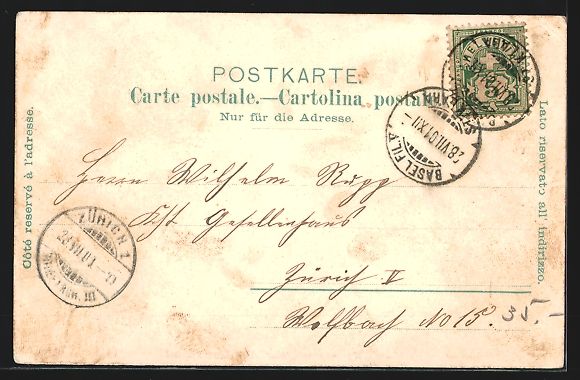 POSTKARTE.
Carte postale.—Cartolina postale
Nur für die Adresse.
Côté reservé à l'adresse.
Lato riservato all' indirizzo.
BASEL FIL.
28 VII.01 XII-
ZÜRICH 1
28 VII 01
III
Herrn Wilhelm Rupp
Gesellenhaus
Zürich V
Wolfbach No 15.
35.-